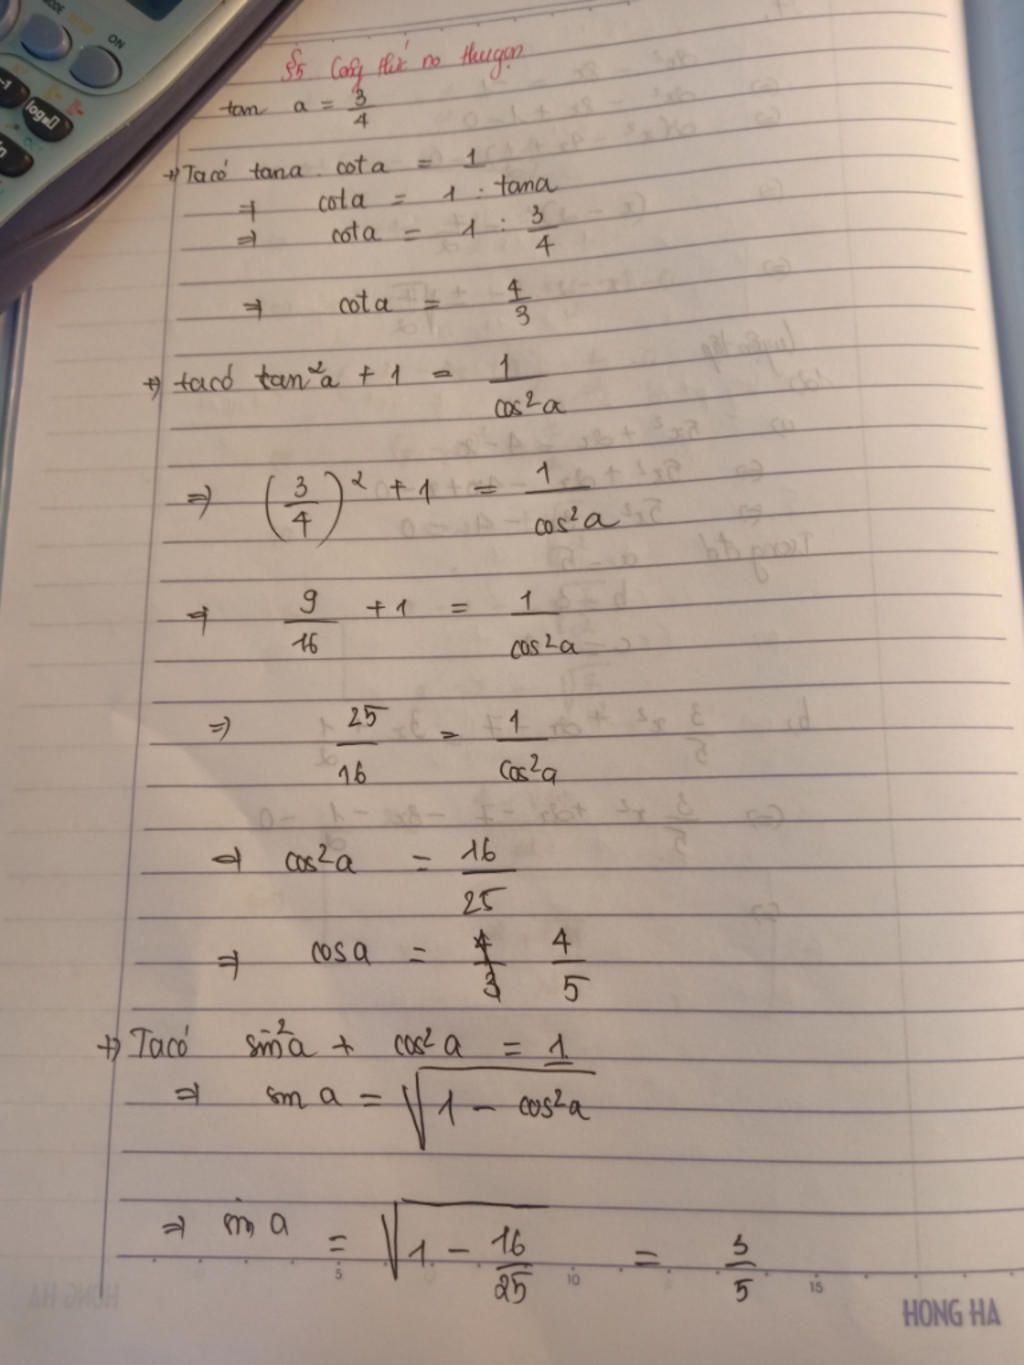 ON
log
§5 Công thức no thu gọn
tan a = 3/4
+) Ta có tana . cota = 1
⇒ cota = 1 : tana
⇒ cota = 1 : 3/4
⇒ cota = 4/3
+) ta có tan²a + 1 = 1/cos²a
⇒ (3/4)² + 1 = 1/cos²a
⇒ 9/16 + 1 = 1/cos²a
⇒ 25/16 = 1/cos²a
⇒ cos²a = 16/25
⇒ cosa = 4/3 4/5
+) Ta có sin²a + cos²a = 1
⇒ sin a = √(1 - cos²a)
⇒ sin a = √(1 - 16/25) = 3/5
5 10 15
HONG HA